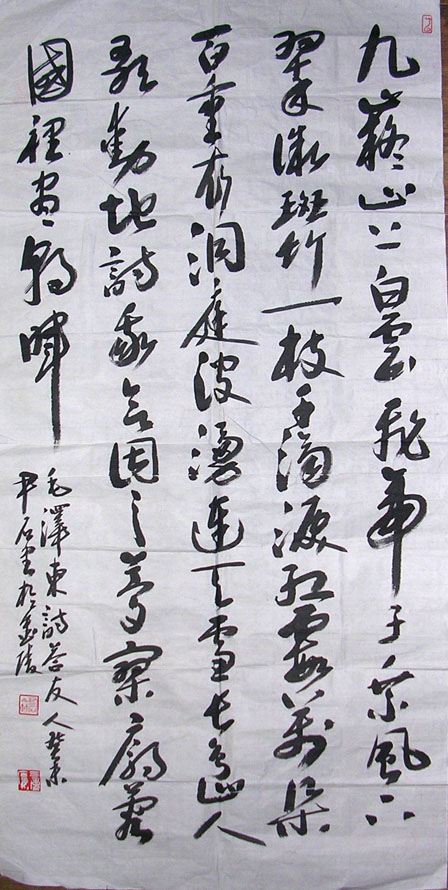 九嶷山上白雲飛帝子乘風下
翠微斑竹一枝千滴淚紅霞萬朵
百重衣洞庭波湧連天雪長島人
歌動地詩我欲因之夢寥廓蓉
國裡盡朝暉
毛澤東詩答友人癸未
尹石書於金陵